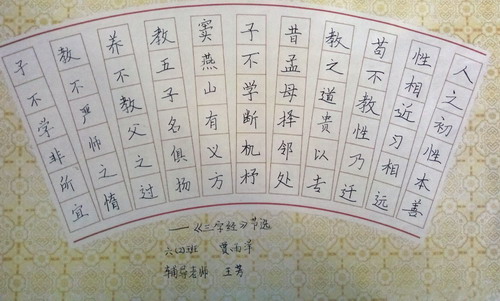 人之初性本善
性相近习相远
苟不教性乃迁
教之道贵以专
昔孟母择邻处
子不学断机杼
窦燕山有义方
教五子名俱扬
养不教父之过
教不严师之惰
子不学非所宜
——《三字经》节选
六四班 贾雨苹
辅导老师 王芳